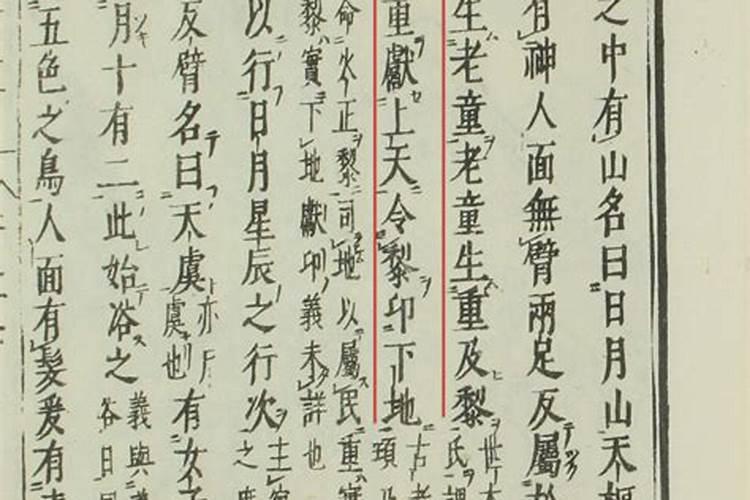 之中有山名曰日月山天
有神人面無臂兩足反屬
生老童老童生重及黎世
氏
重獻上天令黎印下地古
頊
命火正黎司地以屬民重
黎實下地獻印義未詳也
以行日月星辰之行次主
之
反臂名曰天虞亦尸
虞也有女
月十有二此始浴之義與
谷日
五色之鳥人面有髮爰有